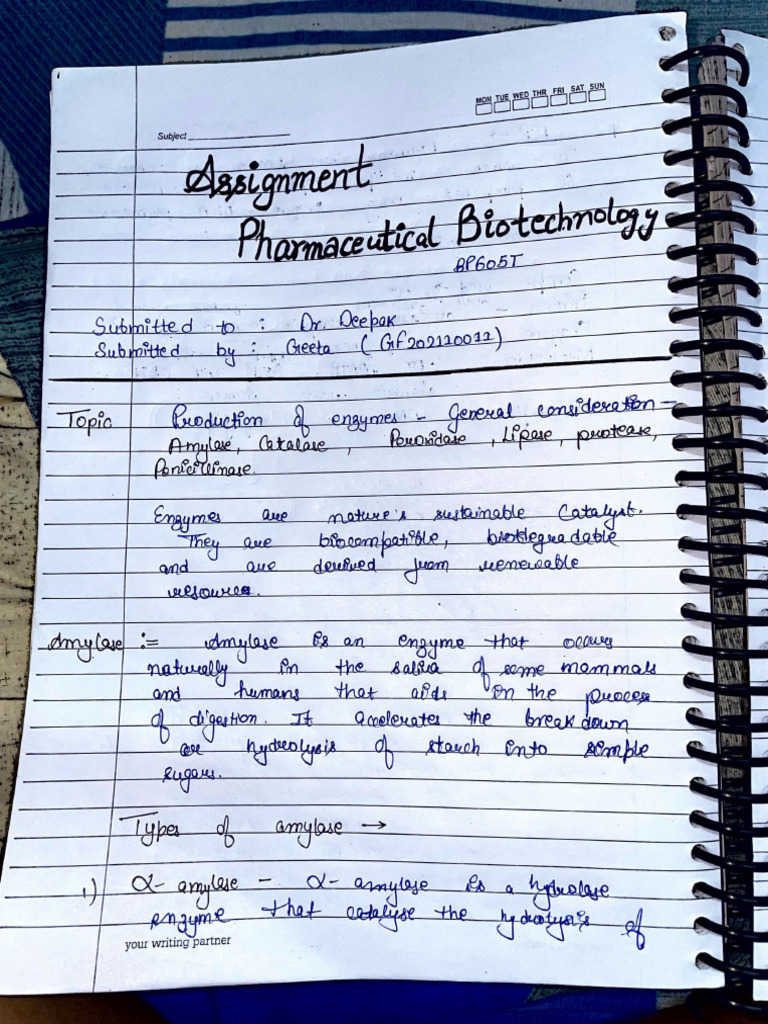 MON TUE WED THR FRI SAT SUN
Subject
Assignment
Pharmaceutical Biotechnology
BP605T
Submitted to : Dr. Deepak
Submitted by : Geeta ( GF202110011)
Topic Production of enzymes - General consideration -
Amylase, Catalase , Peroxidase , Lipase, protease,
Penicillinase.
Enzymes are nature's sustainable Catalyst.
They are biocompatible, biodegradable
and are derived from renewable
resources.
Amylase := Amylase is an enzyme that occurs
naturally in the saliva of some mammals
and humans that aids in the process
of digestion. It accelerates the break down
or hydrolysis of starch into simple
sugars.
Types of amylase →
1) α- amylase - α- amylase is a hydrolase
enzyme that catalyse the hydrolysis of
your writing partner